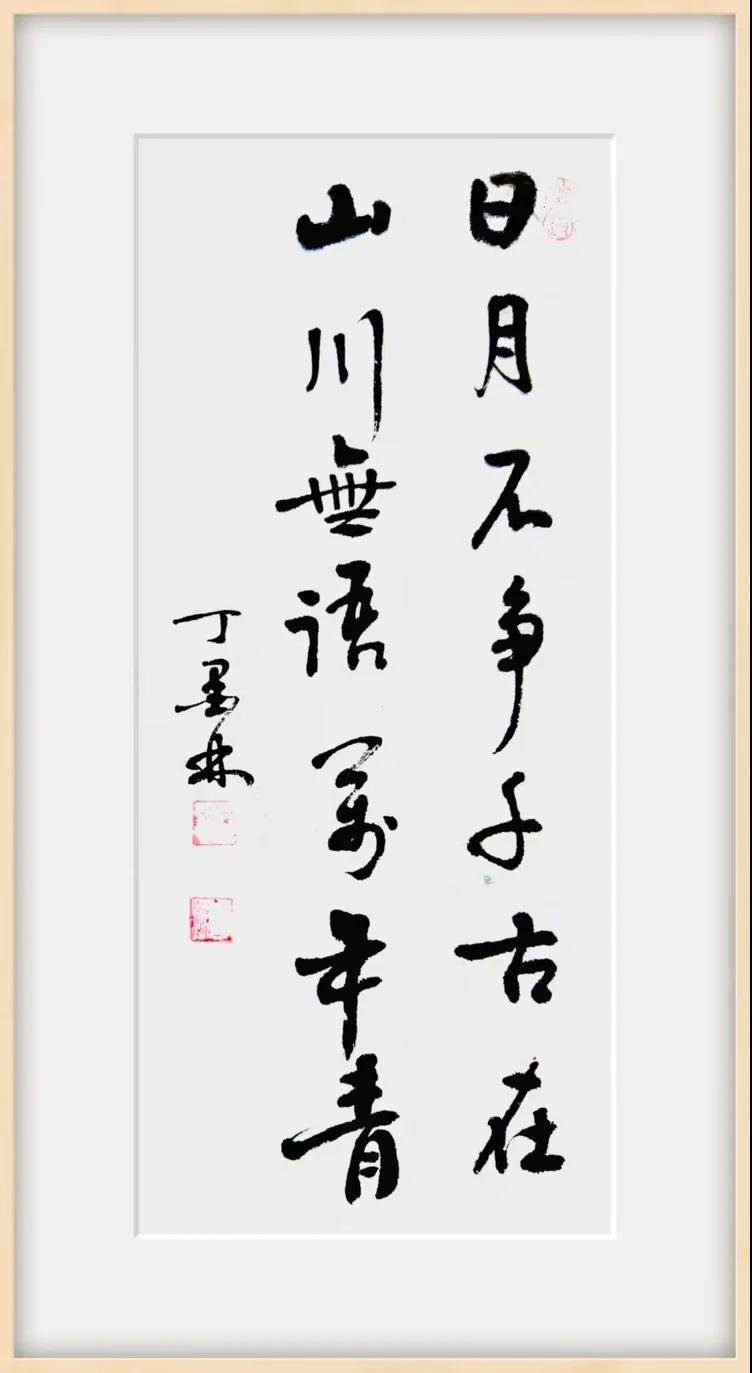 日月不争千古在
山川無语萬年青
丁墨林